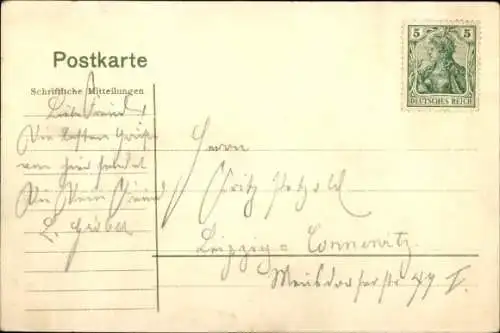 Postkarte
Schriftliche Mitteilungen
5 5
DEUTSCHES REICH
Lieber Freund!
Die besten Grüße
von hier sendet
Dir Dein Freund
Herrn
Fritz Petzold
Leipzig=Connewitz
Meusdorferstr 47 I.